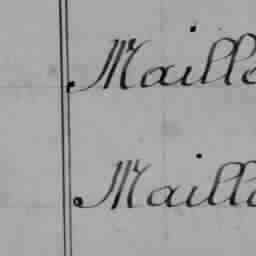 Maille
Maille